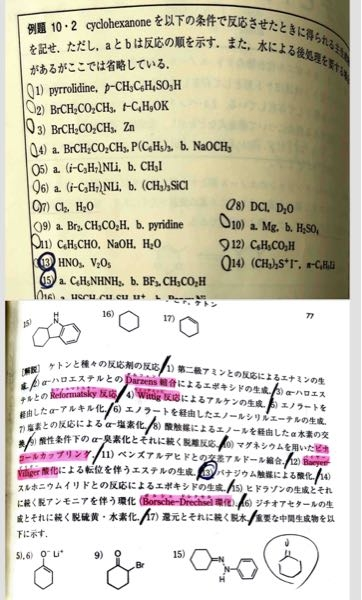 例題 10・2 cyclohexanone を以下の条件で反応させたときに得られる主
を記せ．ただし，aとbは反応の順を示す．また，水による後処理を要する
があるがここでは省略している．
1) pyrrolidine, p-CH3C6H4SO3H
2) BrCH2CO2CH3, t-C4H9OK
3) BrCH2CO2CH3, Zn
4) a. BrCH2CO2CH3, P(C6H5)3, b. NaOCH3
5) a. (i-C3H7)2NLi, b. CH3I
6) a. (i-C3H7)2NLi, b. (CH3)3SiCl
7) Cl2, H2O 8) DCl, D2O
9) a. Br2, CH3CO2H, b. pyridine 10) a. Mg, b. H2SO4
11) C6H5CHO, NaOH, H2O 12) C6H5CO3H
13) HNO3, V2O5 14) (CH3)3S+I-, n-C4H9Li
15) a. C6H5NHNH2, b. BF3, CH3CO2H
16) a. HSCH2CH2SH, H+
ケトン
77
15) 16) 17)
H
N
［解説］ ケトンと種々の反応剤の反応．1) 第二級アミンとの反応によるエナミンの生
成．2) α-ハロエステルとの Darzens 縮合によるエポキシドの生成．3) α-ハロエス
テルとの Reformatsky 反応．4) Wittig 反応によるアルケンの生成．5) エノラートを
経由したα-アルキル化．6) エノラートを経由したエノールシリルエーテルの生成．
7) 塩素との反応によるα-塩素化．8) 酸触媒によるエノールを経由したα水素の交
換．9) 酸性条件下のα-臭素化とそれに続く脱離反応．10) マグネシウムを用いたピナ
コールカップリング．11) ベンズアルデヒドとの交差アルドール縮合．12) Baeyer-
Villiger 酸化による転位を伴うエステルの生成．13) バナジウム触媒による酸化．14)
スルホニウムイリドとの反応によるエポキシドの生成．15) ヒドラゾンの生成とそれ
に続く脱アンモニアを伴う環化 (Borsche-Drechsel 環化)．16) ジチオアセタールの生
成とそれに続く脱硫黄・水素化．17) 還元とそれに続く脱水．重要な中間生成物を以
下に示す．
5), 6) O- Li+ 9) O Br 15) N N H